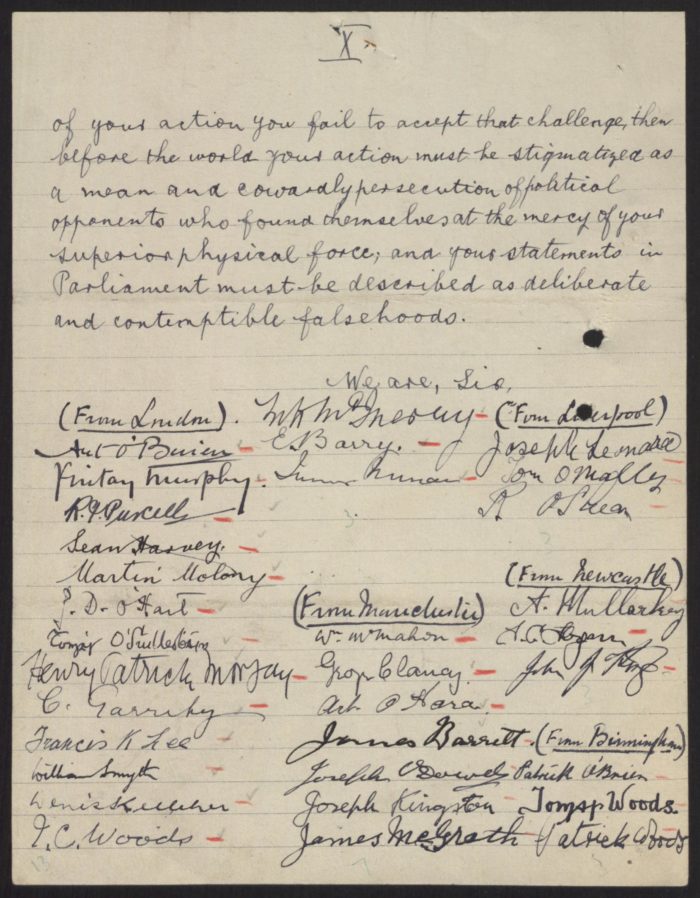 X
of your action you fail to accept that challenge, then
before the world your action must be stigmatized as
a mean and cowardly persecution of political
opponents who found themselves at the mercy of your
superior physical force; and your statements in
Parliament must be described as deliberate
and contemptible falsehoods.
We are, Sir,
(From London).
Art O'Brien
Fintan Murphy.
R. J. Purcell
Sean Harvey.
Martin Molony
J. D. O'Hart
Tomás
Henry Patrick
C.
Francis K Lee
William Smyth
Denis Kelleher
T. C. Woods
13
E. Barry.
(From Manchester)
Wm McMahon
Geo. Clancy
Art O'Hara
James Barrett.
Joseph O'Dowd
Joseph Kingston
James McGrath
7
(From Liverpool)
Joseph Leonard
Tom O'Malley
(From Newcastle)
A. Mullarkey
John J
(From Birmingham)
Patrick O'Brien
Tomas Woods.
Patrick Woods